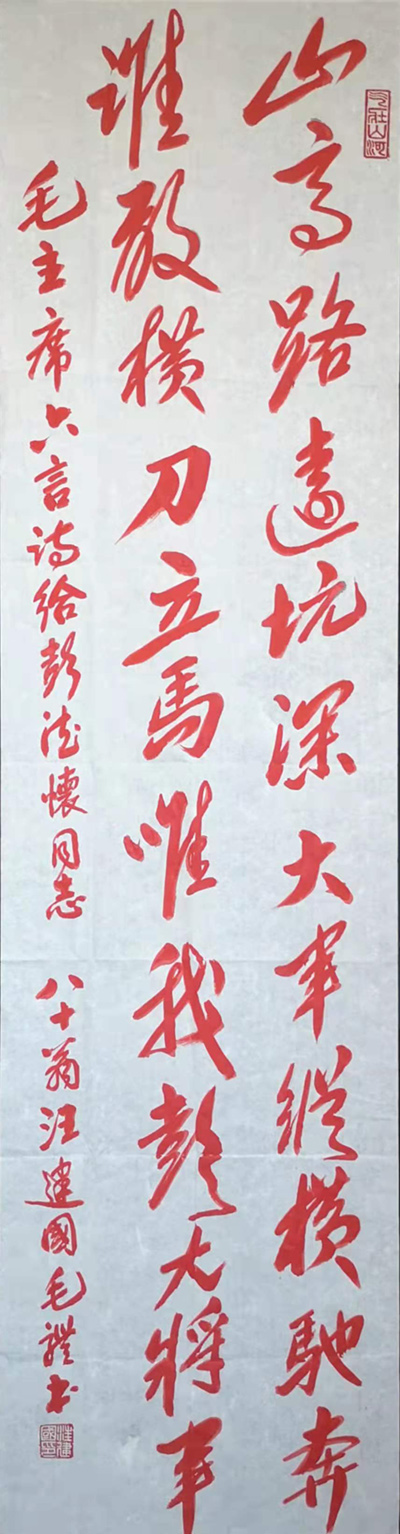 气壮山河
山高路遠坑深大軍縱橫馳奔
誰敢橫刀立馬唯我彭大將軍
毛主席六言詩給彭德懷同志 八十翁汪建國毛體书
汪建國印